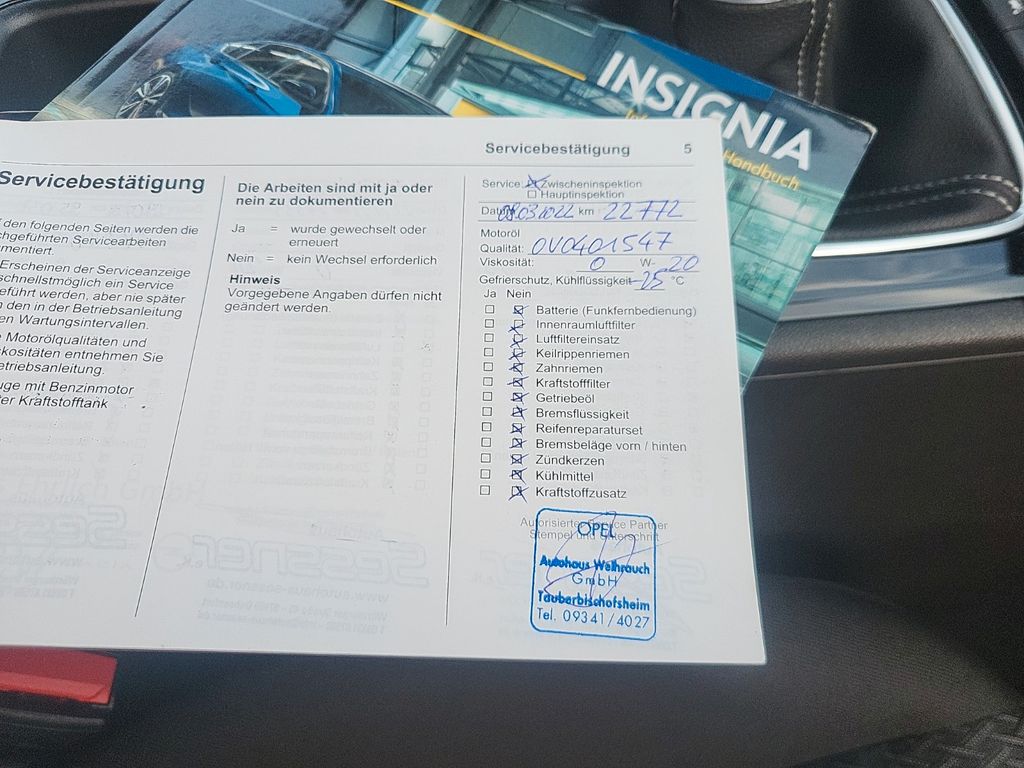 INSIGNIA
Handbuch
Servicebestätigung 5
Servicebestätigung
den folgenden Seiten werden die
chgeführten Servicearbeiten
mentiert.
Erscheinen der Serviceanzeige
schnellstmöglich ein Service
eführt werden, aber nie später
den in der Betriebsanleitung
en Wartungsintervallen.
Motorölqualitäten und
kositäten entnehmen Sie
etriebsanleitung.
uge mit Benzinmotor
er Kraftstofftank
Die Arbeiten sind mit ja oder
nein zu dokumentieren
Ja = wurde gewechselt oder
erneuert
Nein = kein Wechsel erforderlich
Hinweis
Vorgegebene Angaben dürfen nicht
geändert werden.
Service: Zwischeninspektion
Hauptinspektion
Datum 09.03.2022 km 22772
Motoröl
Qualität: OV0401547
Viskosität: 0 W- 20
Gefrierschutz, Kühlflüssigkeit -25 °C
Ja Nein
Batterie (Funkfernbedienung)
Innenraumluftfilter
Luftfiltereinsatz
Keilrippenriemen
Zahnriemen
Kraftstofffilter
Getriebeöl
Bremsflüssigkeit
Reifenreparaturset
Bremsbeläge vorn / hinten
Zündkerzen
Kühlmittel
Kraftstoffzusatz
Autorisierter Service Partner
Stempel und Unterschrift
OPEL
Autohaus Weihrauch
GmbH
Tauberbischofsheim
Tel. 09341/4027